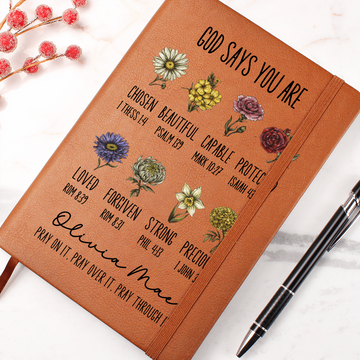 GOD SAYS YOU ARE
CHOSEN BEAUTIFUL CAPABLE PROTEC
1 THESS 1:4 PSALM 139 MARK 10:27 ISAIAH 43
LOVED FORGIVEN STRONG PRECIOU
ROM 8:39 ROM 8:31 PHIL 4:13 1 JOHN 3
Olivia Mae
PRAY ON IT, PRAY OVER IT, PRAY THROUGH I